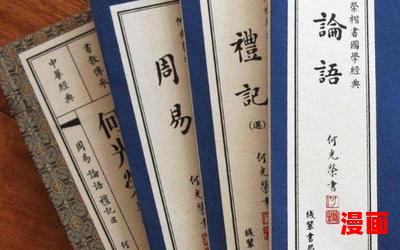 中華經典
書教傳承
何光榮
周易 論語 禮記選
周易
何光榮
禮記
(選)
何光榮書
榮楷書國學經典
論語
何光榮書
线裝書局
漫画